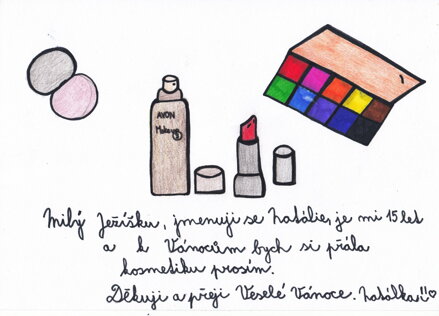 AVON
Makeup
Milý Ježíšku, jmenuji se Natálie, je mi 15 let
a k Vánocům bych si přála
kosmetiku prosím.
Děkuji a přeji Veselé Vánoce. Natálka!!♡